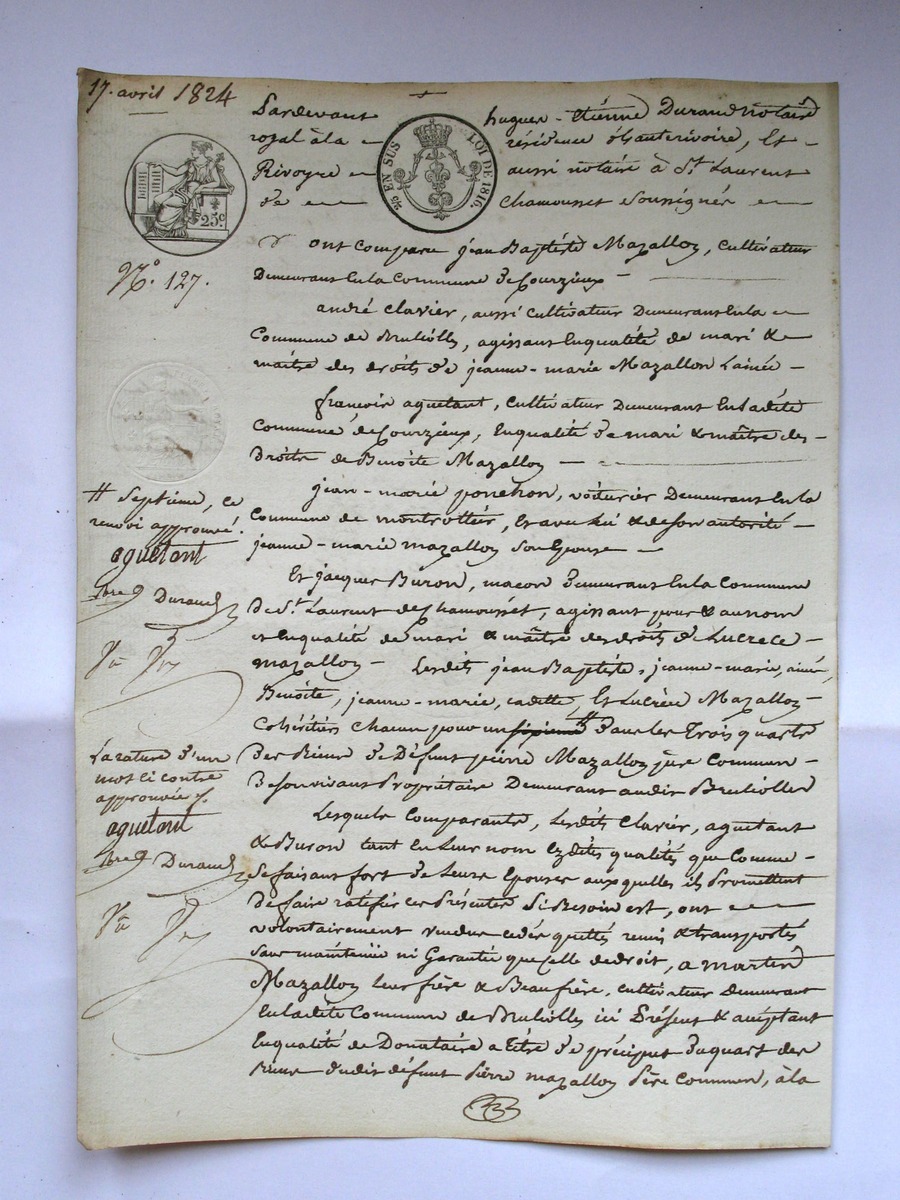 17. avril 1824
Pardevant hugues-étienne Durand notaire
royal à la résidence d'hauterivoire, Et
Rivoyre aussi notaire à St. Laurent
de chamousset soussignés
25 EN SUS LOI DE 1816.
25c.
No. 127.
ont comparu jean Baptiste Mazallon, cultivateur
Demeurant En la Commune de Courzieux
andré clavier, aussi cultivateur Demeurant En la
Commune de Brulioles, agissant En qualité de mari &
maître des droits de jeanne-marie Mazallon Lainée
françois aguetant, cultivateur Demeurant En ladite
Commune de Courzieux, En qualité de mari & maître des
Droits de Benoîte Mazallon
jean-marie ponchon, voiturier Demeurant En la
Commune de montrottier, Et avec lui & de son autorité
jeanne-marie mazallon son Epouse
Et jacques Buron, maçon Demeurant En la Commune
De St. Laurent de Chamousset, agissant pour & au nom
et En qualité de mari & maître des droits de Lucrece
mazallon Lesdits jean Baptiste, jeanne-marie, ainée,
Benoîte, jeanne-marie, cadette, Et Lucrèce Mazallon
Cohéritiers chacun pour un # dans les Trois quarts
Des Biens de Défunt pierre Mazallon père Commun
De son vivant Propriétaire Demeurant audit Brulioles
Lesquels Comparants, Lesdits Clavier, aguetant
& Buron tant En Leur nom Ezdites qualités que Comme
Se faisans fort de Leurs Epouses auxquelles ils Promettent
De faire ratifier ces Présentes Si Besoin est, ont
volontairement vendu cédés quittés remis & transportés
Sans maintenue ni Garantie que Celle de droit, a martin
Mazallon Leur frère & Beaufrère, cultivateur Demeurant
En ladite Commune de Brulioles ici Présent & acceptant
En qualité de Donataire a titre de préciput du quart des
Biens dudit défunt Pierre mazallon Père Commun, à la
# Septième, ce
renvoi approuvé.
aguetant
Durand
La rature d'un
mot ci contre
approuvée
aguetant
Durand